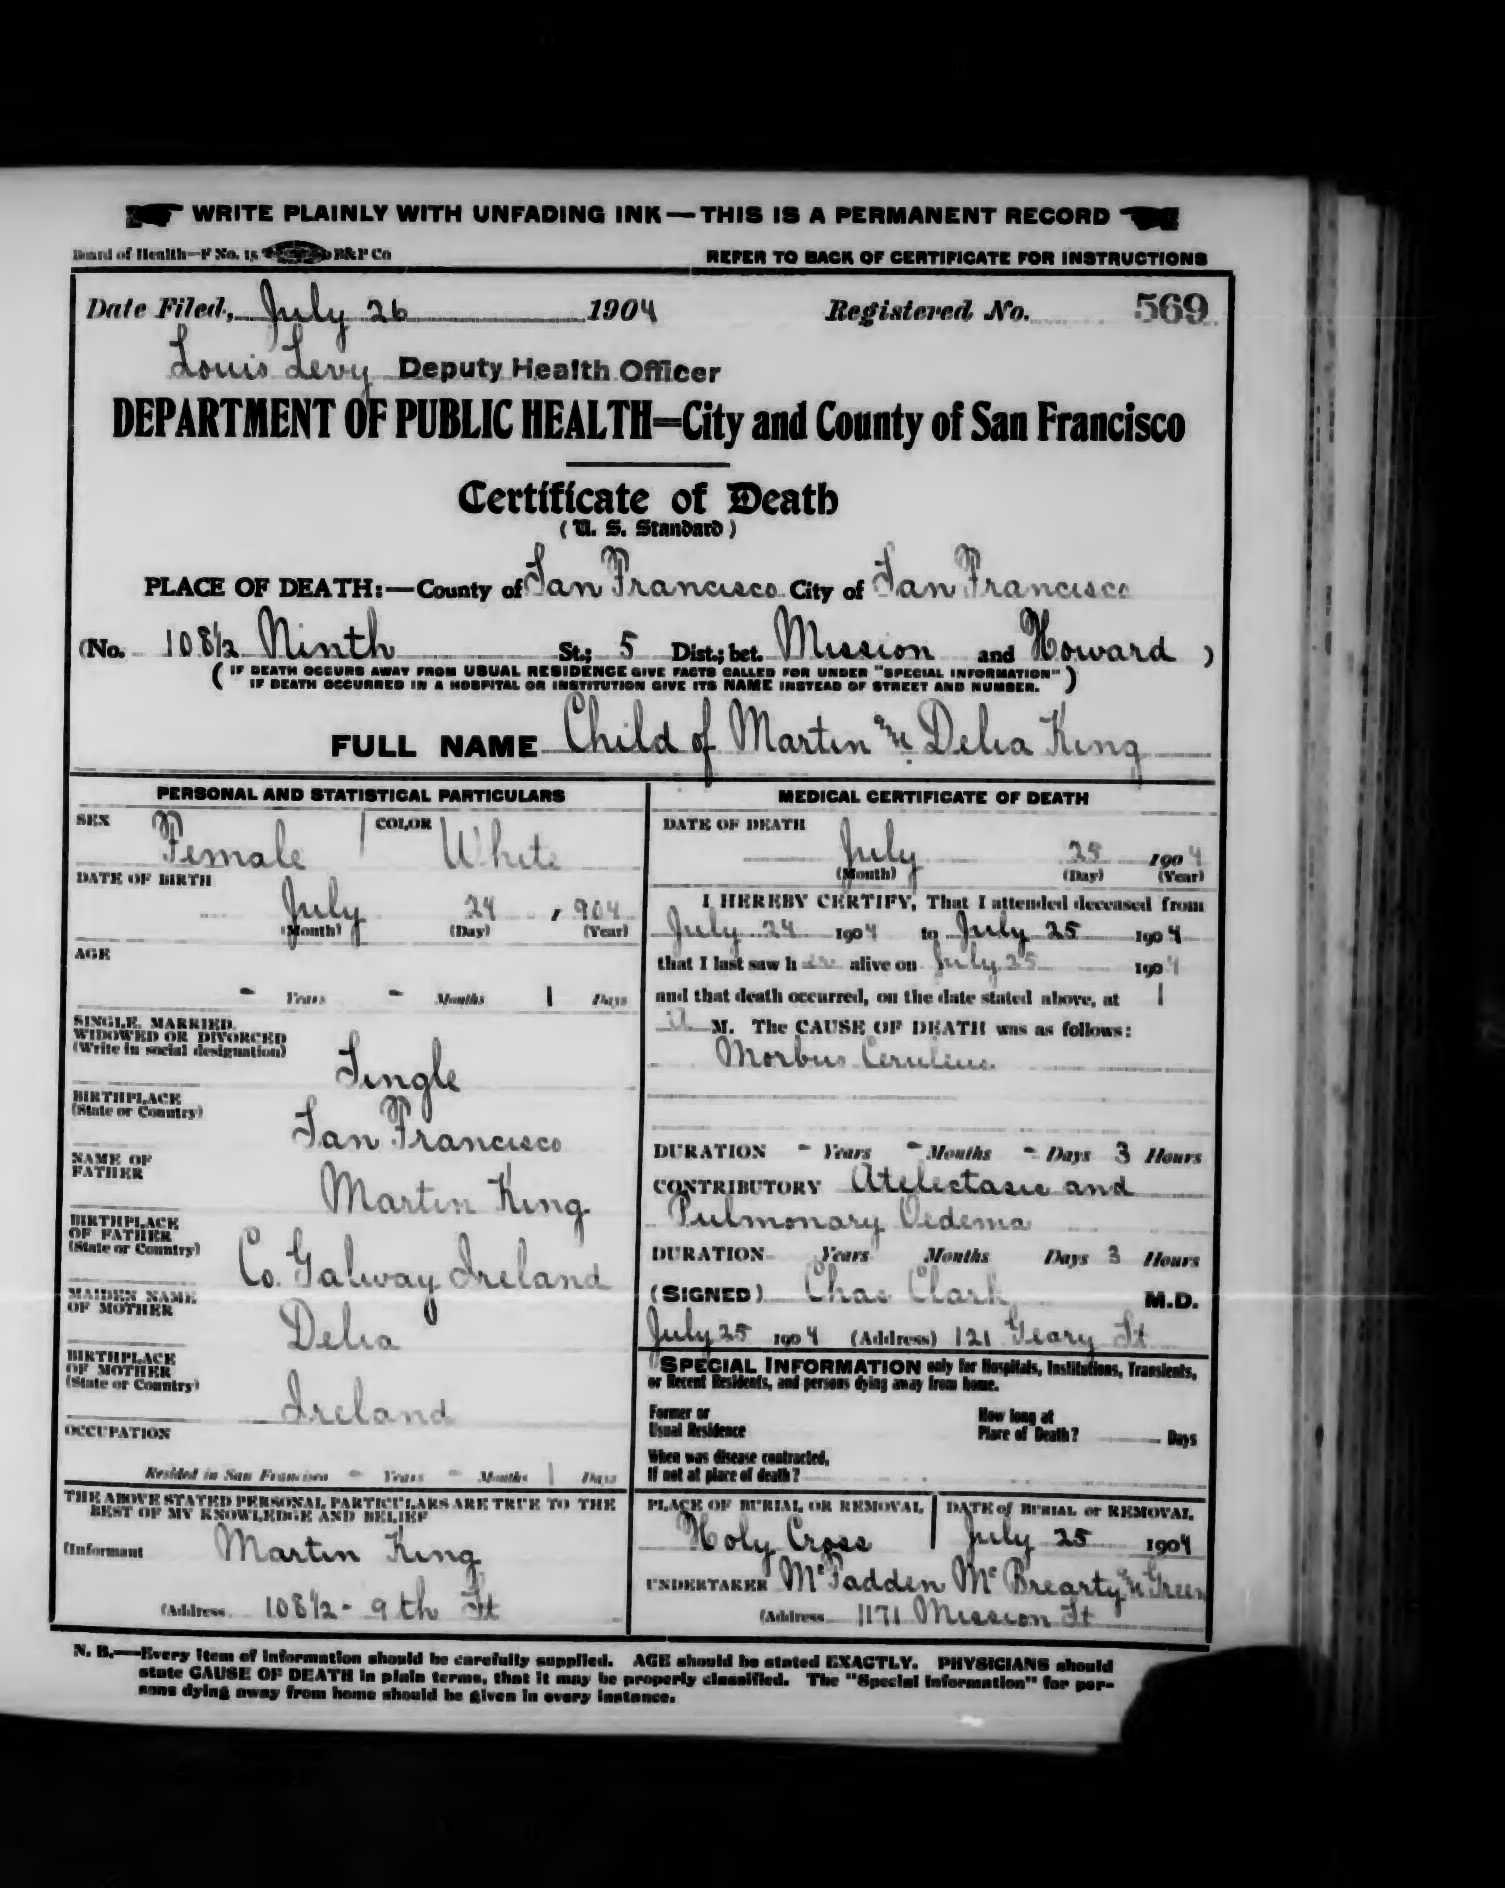 WRITE PLAINLY WITH UNFADING INK — THIS IS A PERMANENT RECORD
Board of Health—F No. 15 B&P Co REFER TO BACK OF CERTIFICATE FOR INSTRUCTIONS
Date Filed, July 26 1904 Registered No. 569
Louis Levy Deputy Health Officer
DEPARTMENT OF PUBLIC HEALTH=City and County of San Francisco
Certificate of Death
(U. S. Standard)
PLACE OF DEATH:—County of San Francisco City of San Francisco
(No. 108½ Ninth St.; 5 Dist.; bet. Mission and Howard )
( IF DEATH OCCURS AWAY FROM USUAL RESIDENCE GIVE FACTS CALLED FOR UNDER "SPECIAL INFORMATION" )
IF DEATH OCCURRED IN A HOSPITAL OR INSTITUTION GIVE ITS NAME INSTEAD OF STREET AND NUMBER.
FULL NAME Child of Martin and Delia King
PERSONAL AND STATISTICAL PARTICULARS
SEX Female COLOR White
DATE OF BIRTH
July 24, 1904
(Month) (Day) (Year)
AGE
- Years - Months 1 Days
SINGLE, MARRIED,
WIDOWED OR DIVORCED
(Write in social designation)
Single
BIRTHPLACE
(State or Country)
San Francisco
NAME OF
FATHER
Martin King
BIRTHPLACE
OF FATHER
(State or Country)
Co. Galway Ireland
MAIDEN NAME
OF MOTHER
Delia
BIRTHPLACE
OF MOTHER
(State or Country)
Ireland
OCCUPATION
Resided in San Francisco - Years - Months 1 Days
THE ABOVE STATED PERSONAL PARTICULARS ARE TRUE TO THE
BEST OF MY KNOWLEDGE AND BELIEF
(Informant Martin King
(Address 108½ - 9th St
MEDICAL CERTIFICATE OF DEATH
DATE OF DEATH
July 25 1904
(Month) (Day) (Year)
I HEREBY CERTIFY, That I attended deceased from
July 24 1904 to July 25 1904
that I last saw her alive on July 25 1904
and that death occurred, on the date stated above, at 1
M. The CAUSE OF DEATH was as follows:
Morbus Ceruleus
DURATION - Years - Months - Days 3 Hours
CONTRIBUTORY Atelectasis and
Pulmonary Oedema
DURATION Years Months Days 3 Hours
(SIGNED) Chas Clark M.D.
July 25 1904 (Address) 121 Geary St
SPECIAL INFORMATION only for Hospitals, Institutions, Transients,
or Recent Residents, and persons dying away from home.
Former or
Usual Residence
How long at
Place of Death? Days
When was disease contracted,
If not at place of death?
PLACE OF BURIAL OR REMOVAL DATE of BURIAL or REMOVAL
Holy Cross July 25 1904
UNDERTAKER McFadden McBrearty & Green
(Address 1171 Mission St
N. B.—Every item of information should be carefully supplied. AGE should be stated EXACTLY. PHYSICIANS should
state CAUSE OF DEATH in plain terms, that it may be properly classified. The "Special Information" for per-
sons dying away from home should be given in every instance.